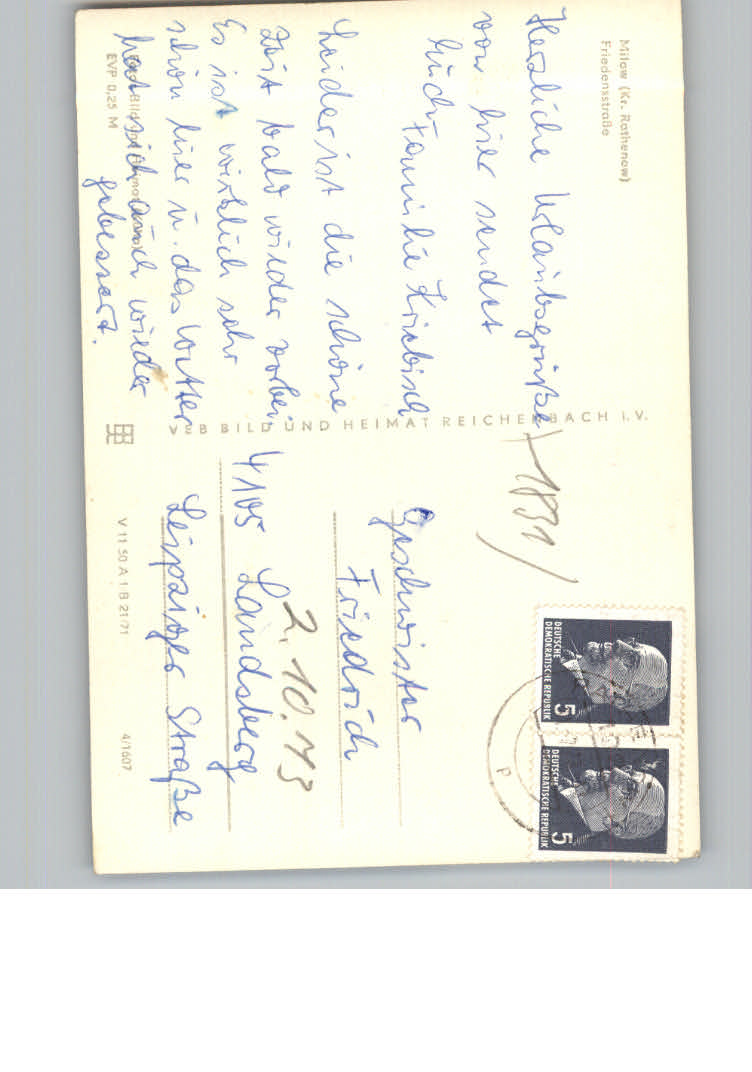 Milow (Kr. Rathenow)
Friedensstraße
Herzliche Urlaubsgrüße
von hier sendet
Euch Familie Kriebisch
Leider ist die schöne
Zeit bald wieder vorbei.
Es ist wirklich sehr
schön hier u. das Wetter
hat sich auch wieder
gebessert.
EVP 0,25 M
VEB BILD UND HEIMAT REICHENBACH I.V.
V 11 50 A 1 B 21/71
4/1607
1831
DEUTSCHE
DEMOKRATISCHE REPUBLIK
5
DEUTSCHE
DEMOKRATISCHE REPUBLIK
5
Geschwister
Friedrich
2.10.73
4105 Landsberg
Leipziger Straße